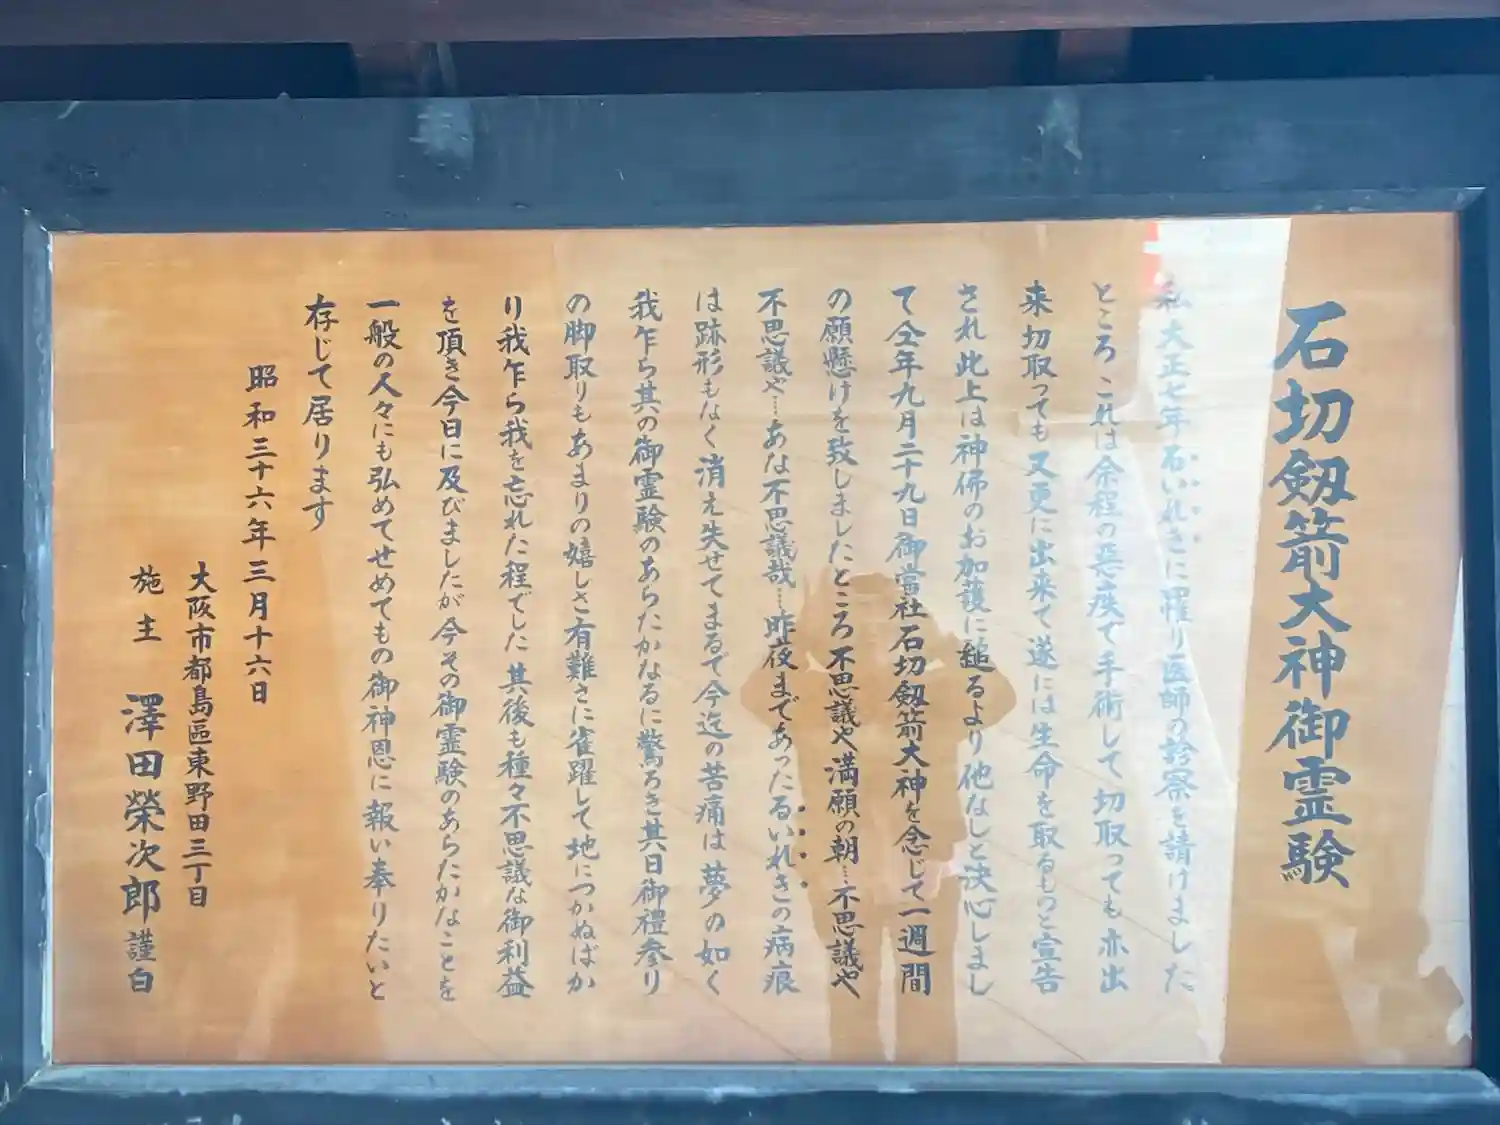 石切劔箭大神御霊験
私大正七年石いれきに罹り医師の診察を請けました
ところ これは余程の悪疾で手術して切取っても亦出
来切取っても又更に出来て遂には生命を取るものと宣告
され此上は神佛のお加護に縋るより他なしと決心しまし
て仝年九月二十九日御當社石切劔箭大神を念じて一週間
の願懸けを致しましたところ不思議や満願の朝…不思議や
不思議や…あな不思議哉…昨夜まであったるいれきの病痕
は跡形もなく消え失せてまるで今迄の苦痛は夢の如く
我乍ら其の御霊験のあらたかなるに驚ろき其日御禮参り
の脚取りもあまりの嬉しさ有難さに雀躍して地につかぬばか
り我乍ら我を忘れた程でした 其後も種々不思議な御利益
を頂き今日に及びましたが今その御霊験のあらたかなことを
一般の人々にも弘めてせめてもの御神恩に報い奉りたいと
存じて居ります
昭和三十六年三月十六日
大阪市都島區東野田三丁目
施主 澤田榮次郎 謹白